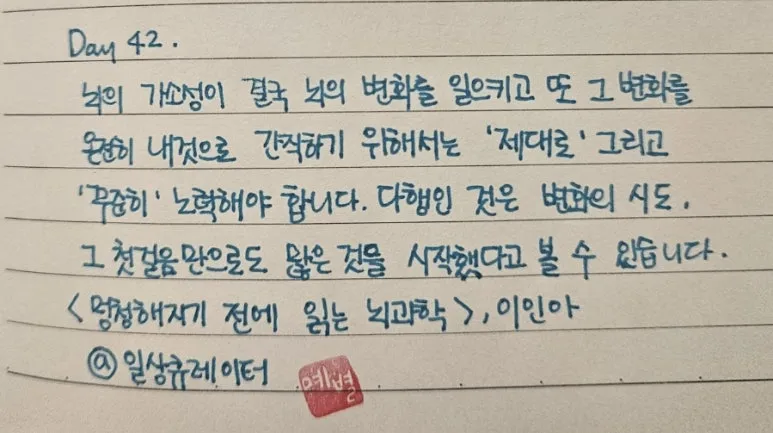 Day 42.
뇌의 가소성이 결국 뇌의 변화를 일으키고 또 그 변화를
온전히 내것으로 간직하기 위해서는 '제대로' 그리고
'꾸준히' 노력해야 합니다. 다행인 것은 변화의 시도,
그 첫걸음만으로도 많은 것을 시작했다고 볼 수 있습니다.
<멍청해지기 전에 읽는 뇌과학>, 이인아
@일상큐레이터
예별